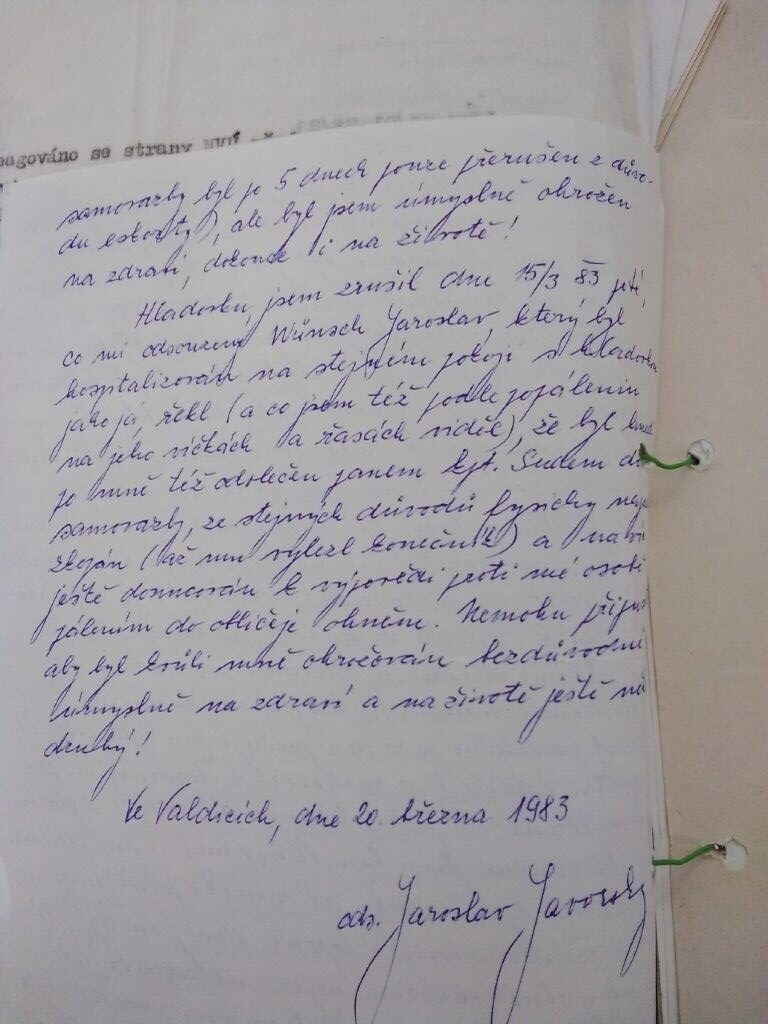 pagováno se strany NVÚ
samovazby byl po 5 dnech pouze přerušen z důvo-
du eskorty), ale byl jsem úmyslně ohrožen
na zdraví, dokonce i na životě!
Hladovku jsem zrušil dne 15/3 83 poté,
co mi odsouzený Wünsch Jaroslav, který byl
hospitalizován na stejném pokoji s hladovkou
jako já, řekl (a co jsem též podle popálenin
na jeho víčkách a řasách viděl), že byl hned
po mně též odvlečen panem kpt. Sudem do
samovazby, ze stejných důvodů fysicky
zkopán (až mu vylezl konečník) a
ještě donucován k výpovědi proti mé osobě
pálením do obličeje ohněm. Nemohu
aby byl kvůli mně ohrožován bezdůvodně
úmyslně na zdraví a na životě ještě
druhý!
Ve Valdicích, dne 20. března 1983
ods. Jaroslav Javorský